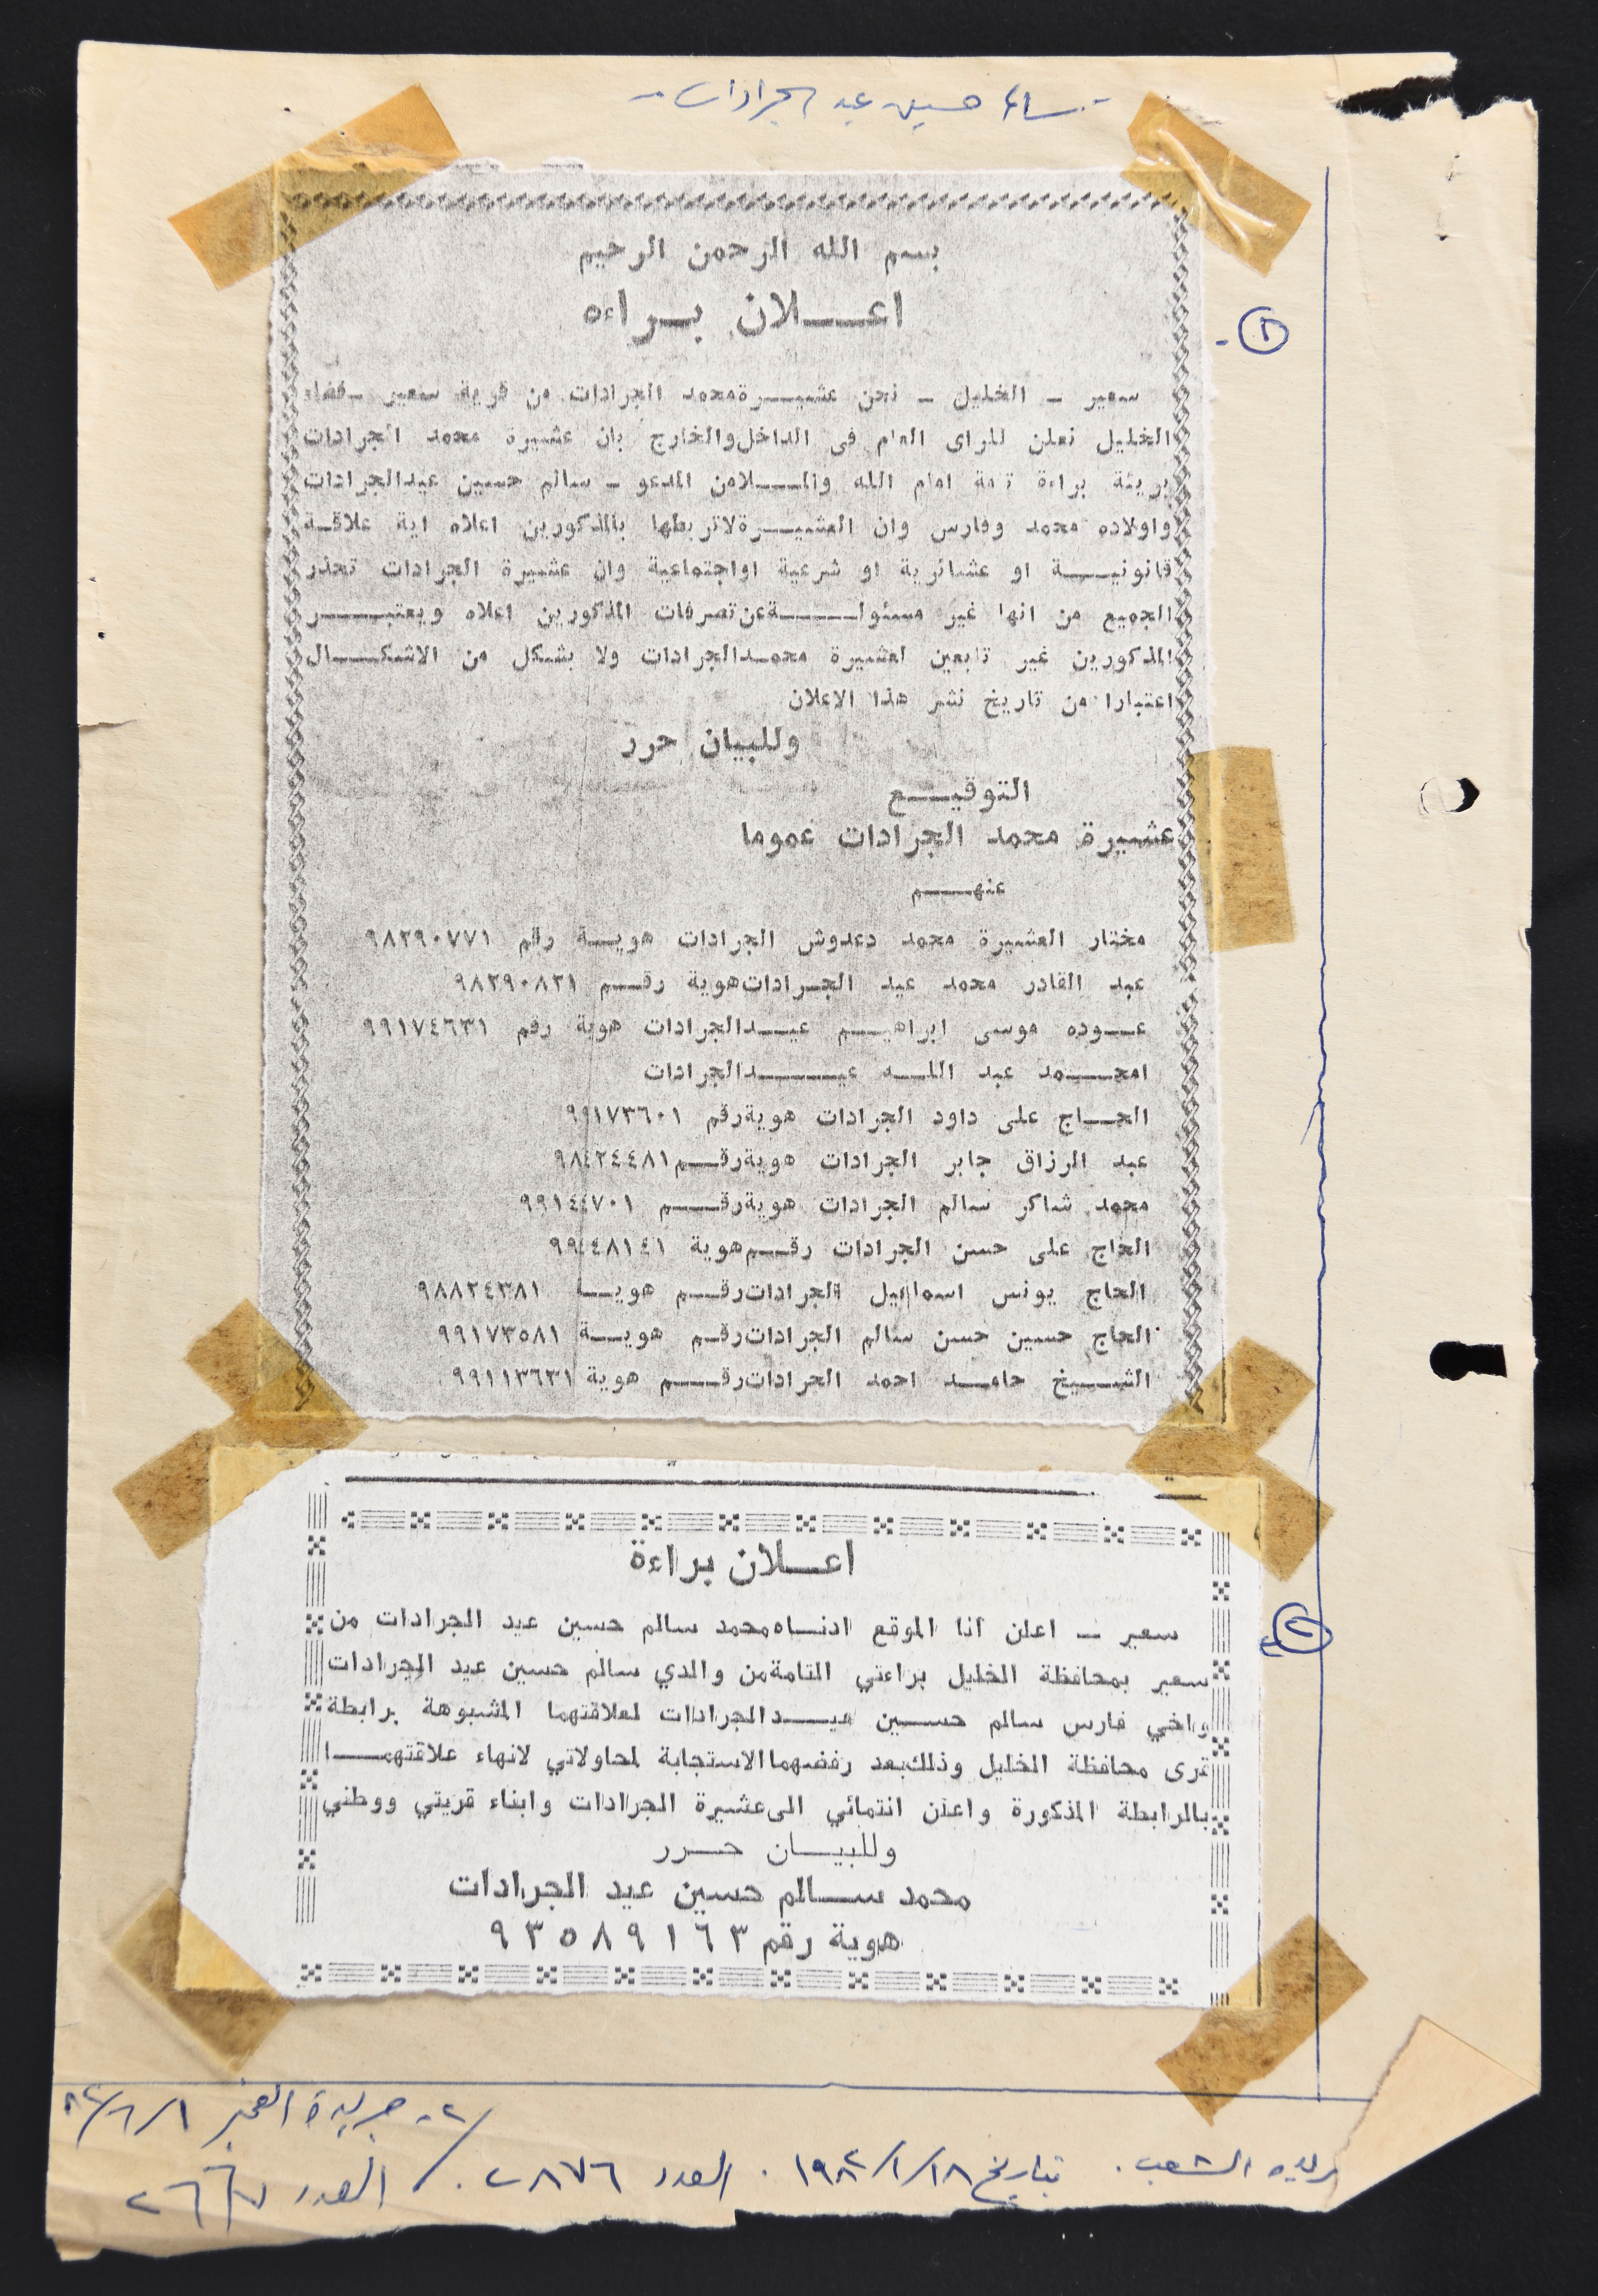 سالم حسين عيد الجرادات
١-
بسم الله الرحمن الرحيم
اعـــلان بـراءه
سعير ـ الخليل ـ نحن عشيـــرة محمد الجرادات من قرية سعير ـ قضاء
الخليل نعلن للراى العام فى الداخل والخارج بان عشيرة محمد الجرادات
بريئة براءة تامة امام الله والمـــلا من المدعو ـ سالم حسين عيد الجرادات
واولاده محمد وفارس وان العشيـــرة لا تربطها بالمذكورين اعلاه اية علاقـة
قانونيـــة او عشائرية او شرعية او اجتماعية وان عشيرة الجرادات تحذر
الجميع من انها غير مسئولـــة عن تصرفات المذكورين اعلاه ويعتبـــر
المذكورين غير تابعين لعشيرة محمـد الجرادات ولا بشكل من الاشكـــال
اعتبارا من تاريخ نشر هذا الاعلان
وللبيان حرر
التوقيـــع
عشيرة محمد الجرادات عموما
عنهـــم
مختار العشيرة محمد دعدوش الجرادات هويـــة رقم ٩٨٢٩٠٧٧١
عبد القادر محمد عيد الجـرادات هوية رقـــم ٩٨٢٩٠٨٢١
عـــوده موسى ابراهيـــم عيـــد الجرادات هوية رقم ٩٩١٧٤٦٣١
امحـــمد عبد اللـــه عيـــد الجرادات
الحـــاج على داود الجرادات هوية رقم ٩٩١٧٣٦٠١
عبد الرزاق جابر الجرادات هوية رقـــم ٩٨٤٢٤٤٨١
محمد شاكر سالم الجرادات هوية رقـــم ٩٩١٤٤٧٠١
الحاج على حسن الجرادات رقـــم هوية ٩٩٤٤٨١٤١
الحاج يونس اسماعيل الجرادات رقـــم هويـــة ٩٨٨٢٤٣٨١
الحاج حسين حسن سالم الجرادات رقـم هويـــة ٩٩١٧٣٥٨١
الشـــيخ حامـــد احمد الجرادات رقـــم هوية ٩٩١١٣٦٣١
٢-
اعـــلان براءة
سعير ـ اعلن انا الموقع ادنـــاه محمد سالم حسين عيد الجرادات من
سعير بمحافظة الخليل براءتي التامة من والدي سالم حسين عيد الجرادات
واخي فارس سالم حســـين عيـــد الجرادات لعلاقتهما المشبوهة برابطة
قرى محافظة الخليل وذلك بعد رفضهما الاستجابة لمحاولاتي لانهاء علاقتهمـــا
بالرابطة المذكورة واعلن انتمائي الى عشيرة الجرادات وابناء قريتي ووطني
وللبيـــان حـــرر
محمد ســـالم حسين عيد الجرادات
هوية رقم ٩٣٥٨٩١٦٣
٢- جريدة الفجر
الشعب. بتاريخ ١٩٨٢/١/١٨. العدد ٢٨٧٦. / العدد